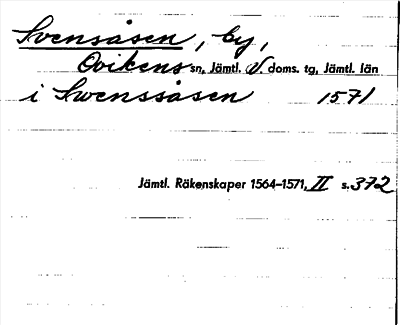 Svensåsen, by,
Ovikens sn, Jämtl. V. doms. tg, Jämtl. län
i Swenssåsen 1571
Jämtl. Räkenskaper 1564–1571, II s. 372